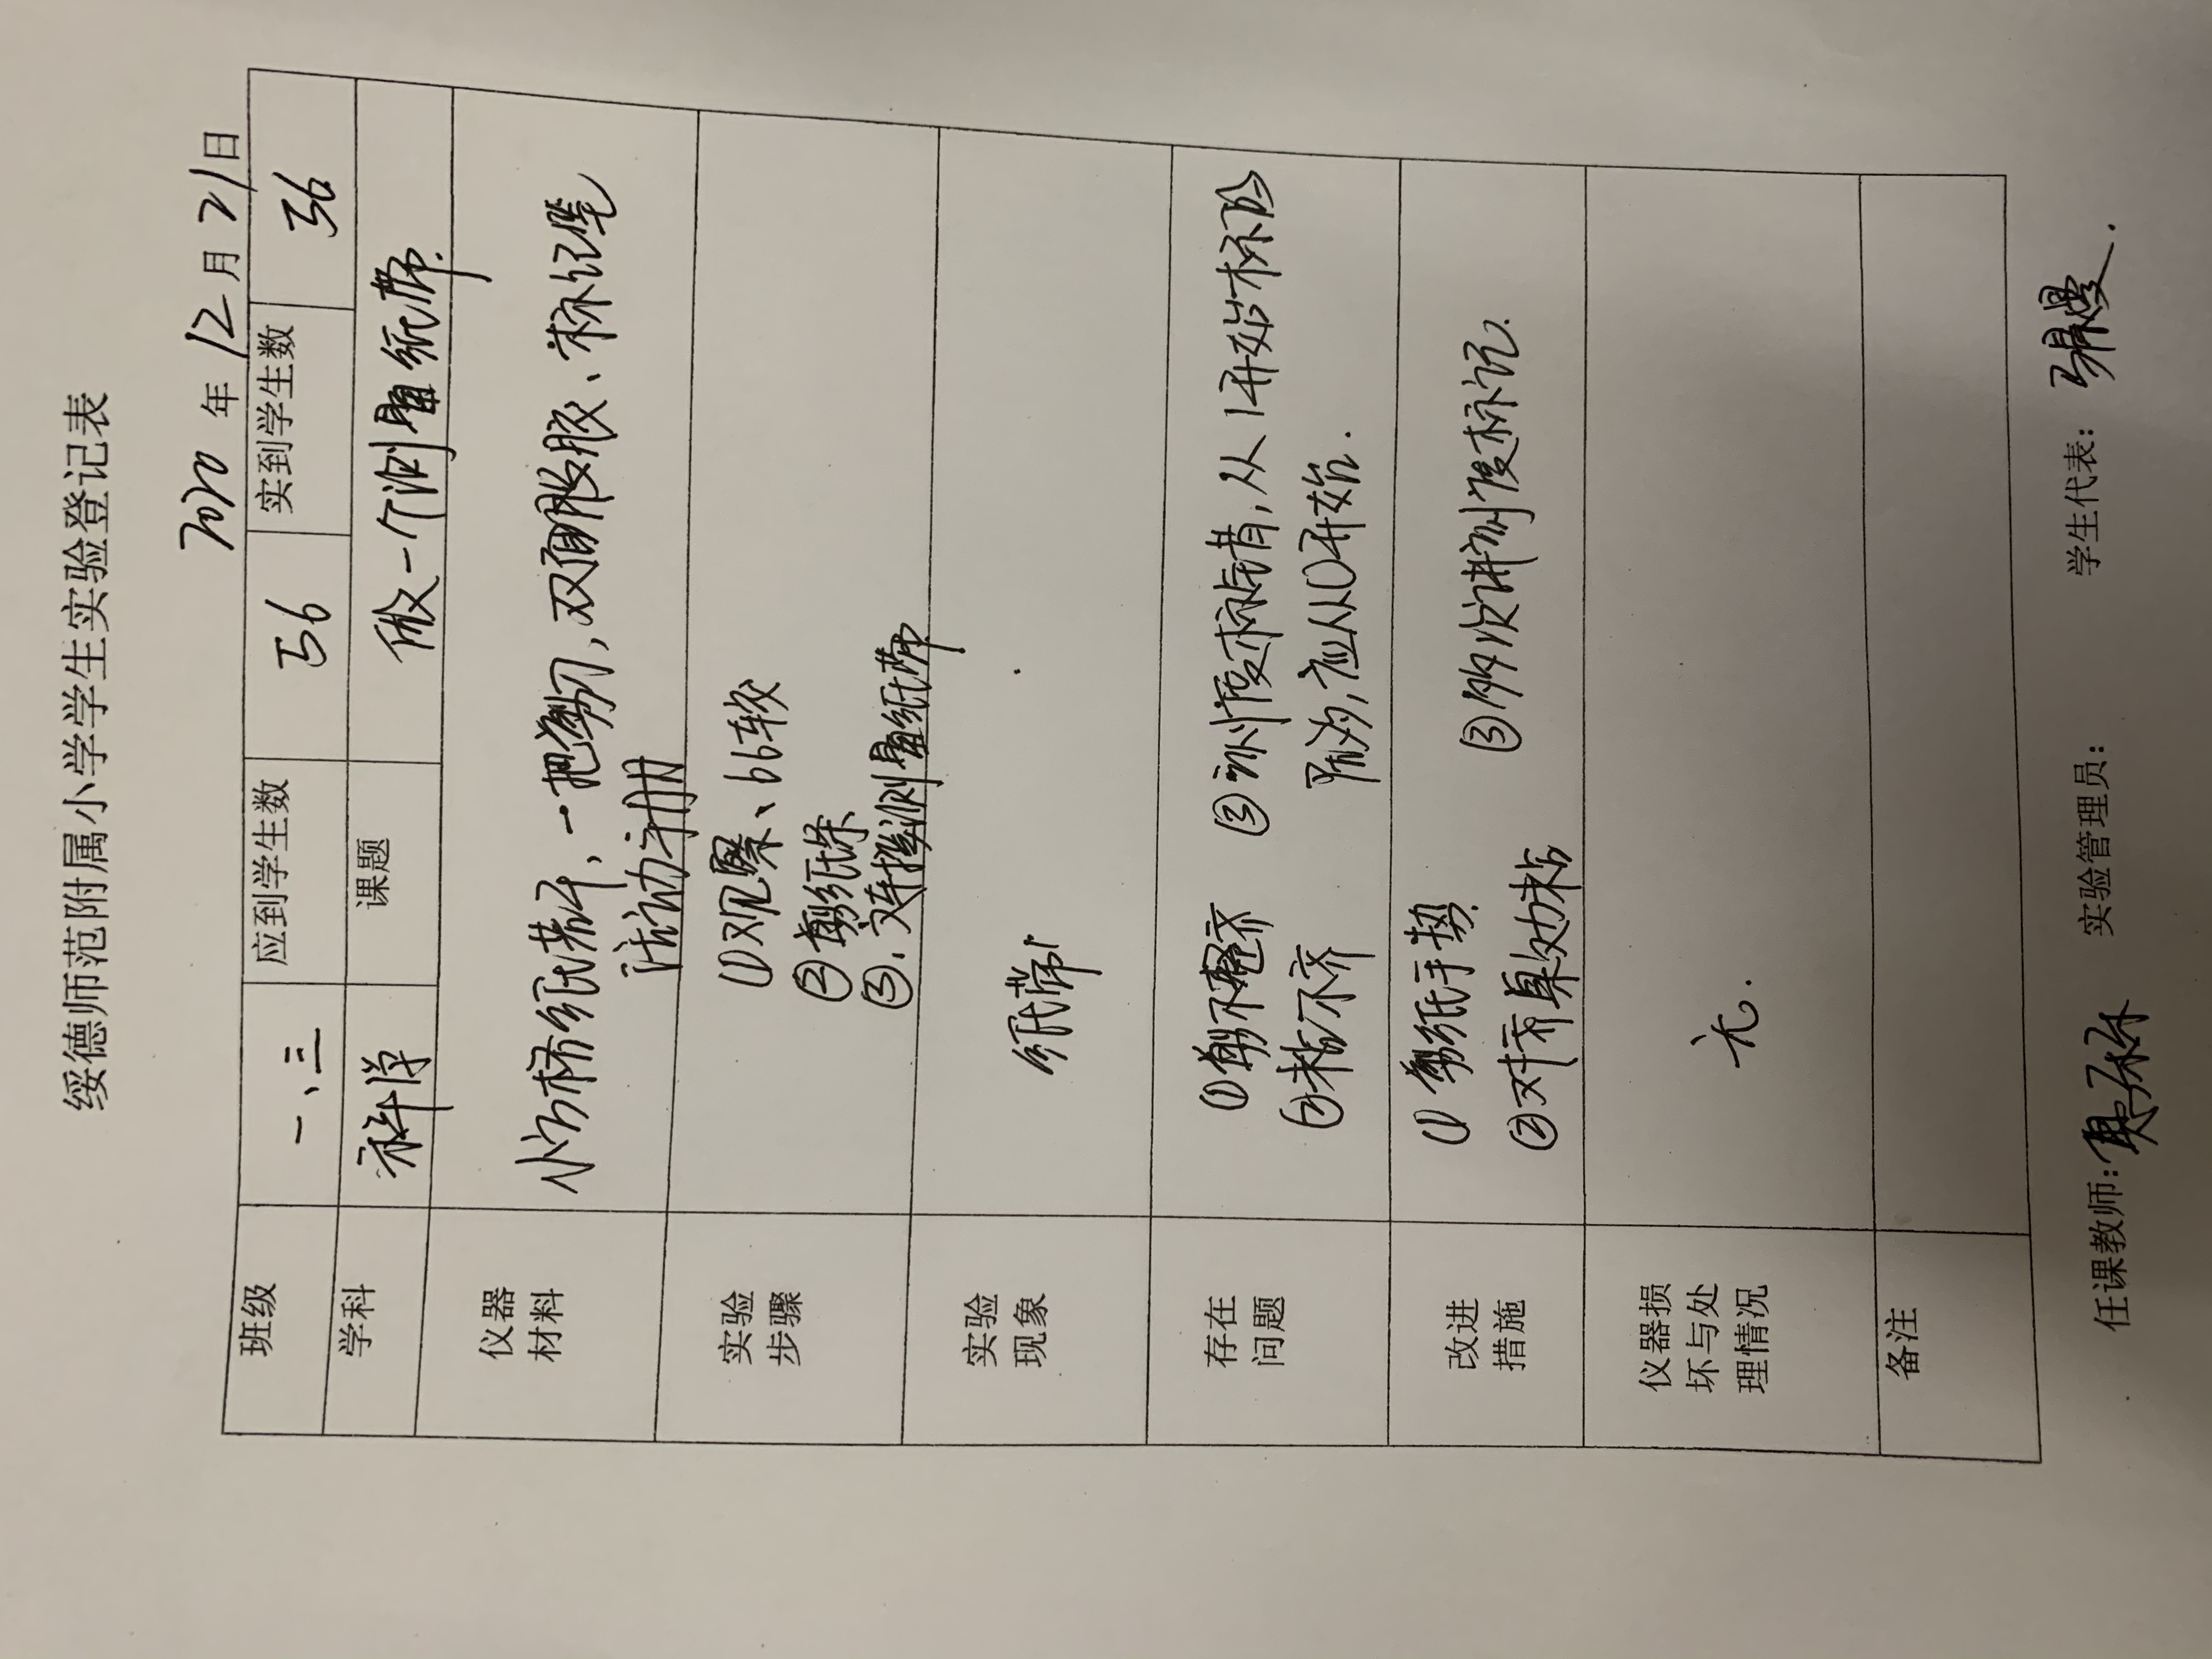 绥德师范附属小学学生实验登记表
2020 年 12 月 21 日
班级 一、三 应到学生数 56 实到学生数 56
学科 科学 课题 做一个测量纸带
仪器材料 小方格纸若干、一把剪刀,双面胶、标记笔
活动手册
实验步骤 ①观察、比较
②剪纸条
③.连接测量纸带
实验现象 纸带
存在问题 ①剪不整齐 ③刻度标错,从1开始标
②粘不齐 应从0开始.
改进措施 ①剪纸手势 ③讲刻度标记.
②对齐具处粘
仪器损坏与处理情况 无.
备注
任课教师: 实验管理员: 学生代表: 张